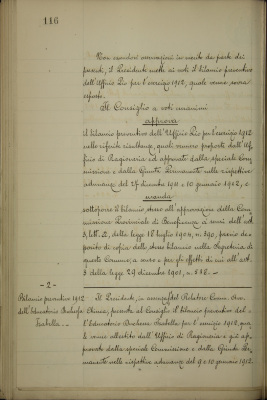 116
Non essendovi osservazioni in merito da parte dei
presenti, il Presidente mette ai voti il bilancio preventivo
dell'Ufficio Pio per l'esercizio 1912, quale venne sovra
riferito.
Il Consiglio a voti unanimi
approva
il bilancio preventivo dell'Ufficio Pio per l'esercizio 1912
nelle riferite risultanze, quali vennero proposte dall'Uf-
ficio di Ragioneria ed approvate dalla speciale Com-
missione e dalla Giunta Permanente nelle rispettive
adunanze del 27 dicembre 1911 e 10 gennaio 1912, e
manda
sottoporre il bilancio stesso all'approvazione della Com-
missione Provinciale di Beneficenza, a sensi dell'art.
5, lett. , della legge 18 luglio 1904, n. 390, previo de-
posito di copia dello stesso bilancio nella Segreteria di
questo Comune, a senso e per gli effetti di cui all'art.
3 della legge 29 dicembre 1901, n. 548. -
- 2 -
Bilancio preventivo 1912
dell'Educatorio
Isabella. -
Il Presidente, in assenza del Relatore Comm. Avv.
presenta al Consiglio il bilancio preventivo del-
l'Educatorio Isabella per l'esercizio 1912, qua-
le venne allestito dall'Ufficio di Ragioneria e già ap-
provato dalla speciale Commissione e dalla Giunta Per-
manente nelle rispettive adunanze del 9 e 10 gennaio 1912.